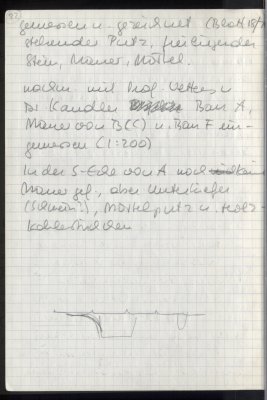 gemessen u. gezeichnet (Blatt
stehender Putz, freiliegender
Stein, Mauer, Mörtel.
nachm. mit Prof. Vetters u
Dr. Kandler Bau A,
Mauer von B(C) u. Bau F ein-
gemessen (1:200)
In der S-Ecke von A noch keine
Mauer gef., aber Unterkiefer
(Schwein?), Mörtelputz u. Holz-
kohlestückchen